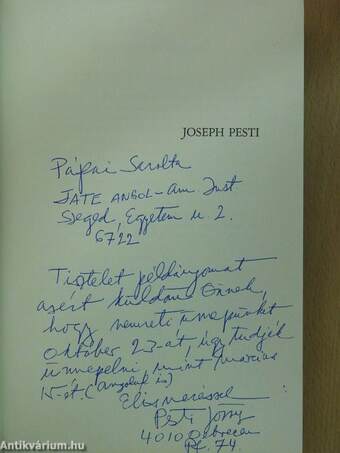 JOSEPH PESTI
Pápai Sarolta
JATE ANGOL-Am. Inst
Szeged, Egyetem u. 2.
6722
Tisztelet példányomat
azért küldöm Önnek,
hogy nemzeti ünnepünket
október 23-át, úgy tudják
ünnepelni, mint március
15-ét. (angolul is)
Elismeréssel
Pesti József
4010 Debrecen
Pf. 74.
Antikvárium.hu